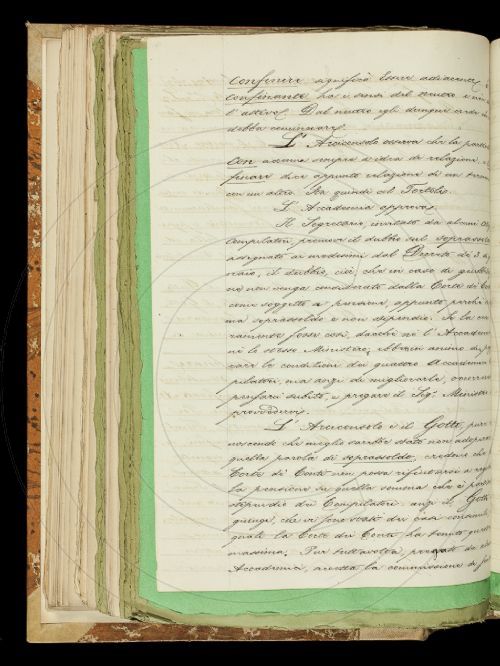 Confinare significò Essere adiacente,
confinante ha i sensi del neutro e non
l'attivo. Dal neutro egli dunque crede che
debba cominciarsi.
L'Arciconsolo osserva che la parti
Con accenna sempre a idea di relazione, e
finare dice appunto relazione di un terreno
con un altro. Sta quindi col Tortoli.
L'Accademia approva.
Il Segretario, invitato da alcuni
Compilatori, promove il dubbio sul soprassoldo
assegnato ai medesimi dal Decreto de' 3
naio, il dubbio, cioè, che in caso di
ne non venga considerato dalla Corte de' Conti
come soggetto a pensione, appunto perchè
ma soprassoldo e non stipendio. Se la cosa
ramente fosse così, dacchè nè l'Accademia
nè lo stesso Ministero, ebbero animo di
rare la condizione dei quattro Accademici
pilatori, ma anzi di migliorarla, converrebbe
pensarci subito, e pregare il Sig. Ministro
provvedervi.
L'Arciconsolo e il Gotti, pur
noscendo che meglio sarebbe stato non adoperare
quella parola di soprassoldo, credono che
Corte dei Conti non possa rifiutarsi a
la pensione su quella somma che è parte
stipendio dei Compilatori: anzi il Gotti
giunge, che vi sono stati dei casi consimili,
quali la Corte dei Conti ha tenuto questa
massima. Pur tuttavolta, pregato da
Accademia, accetta la commissione di